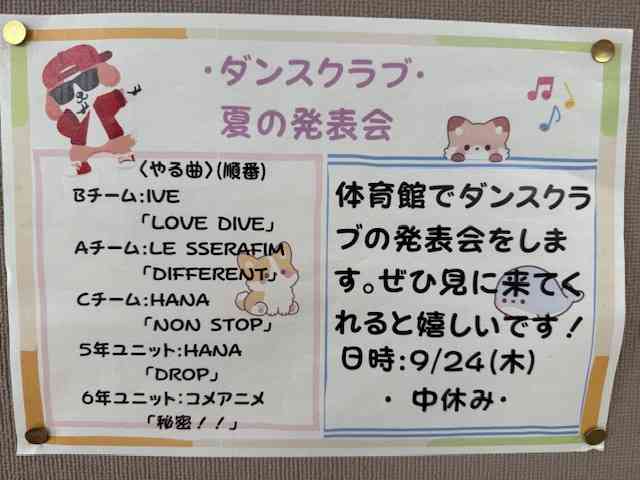 ・ダンスクラブ・
夏の発表会
〈やる曲〉(順番)
Bチーム:IVE
「LOVE DIVE」
Aチーム:LE SSERAFIM
「DIFFERENT」
Cチーム:HANA
「NON STOP」
5年ユニット:HANA
「DROP」
6年ユニット:コメアニメ
「秘密！！」
体育館でダンスクラ
ブの発表会をしま
す。ぜひ見に来てく
れると嬉しいです！
日時:9/24(木)
・中休み・